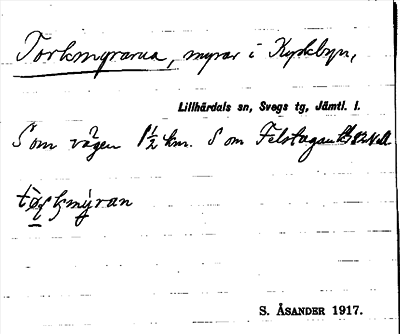 Torkmyrarna, myrar i Kyrkbyn,
Lillhärdals sn, Svegs tg, Jämtl. l.
S om vägen 1½ km. S om
tøʈkmỳran
S. ÅSANDER 1917.